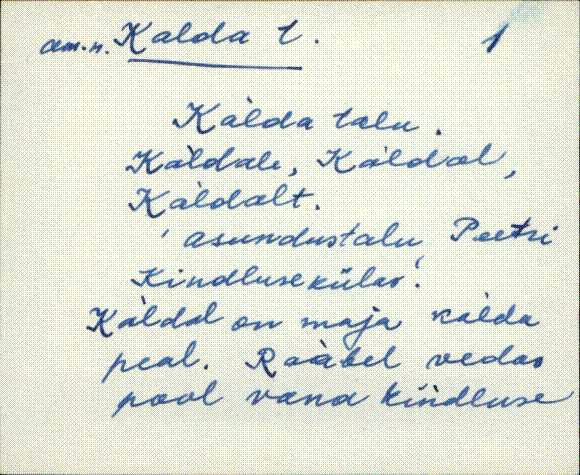 am.n. Kalda t. 1
Kàlda talu.
Kàldale, Kàldal,
Kàldalt.
'asundustalu Peetri
Kindluse külas'.
Kàldal on maja kàlda
peal. Raàbel vedas
pool vana kiǹdluse